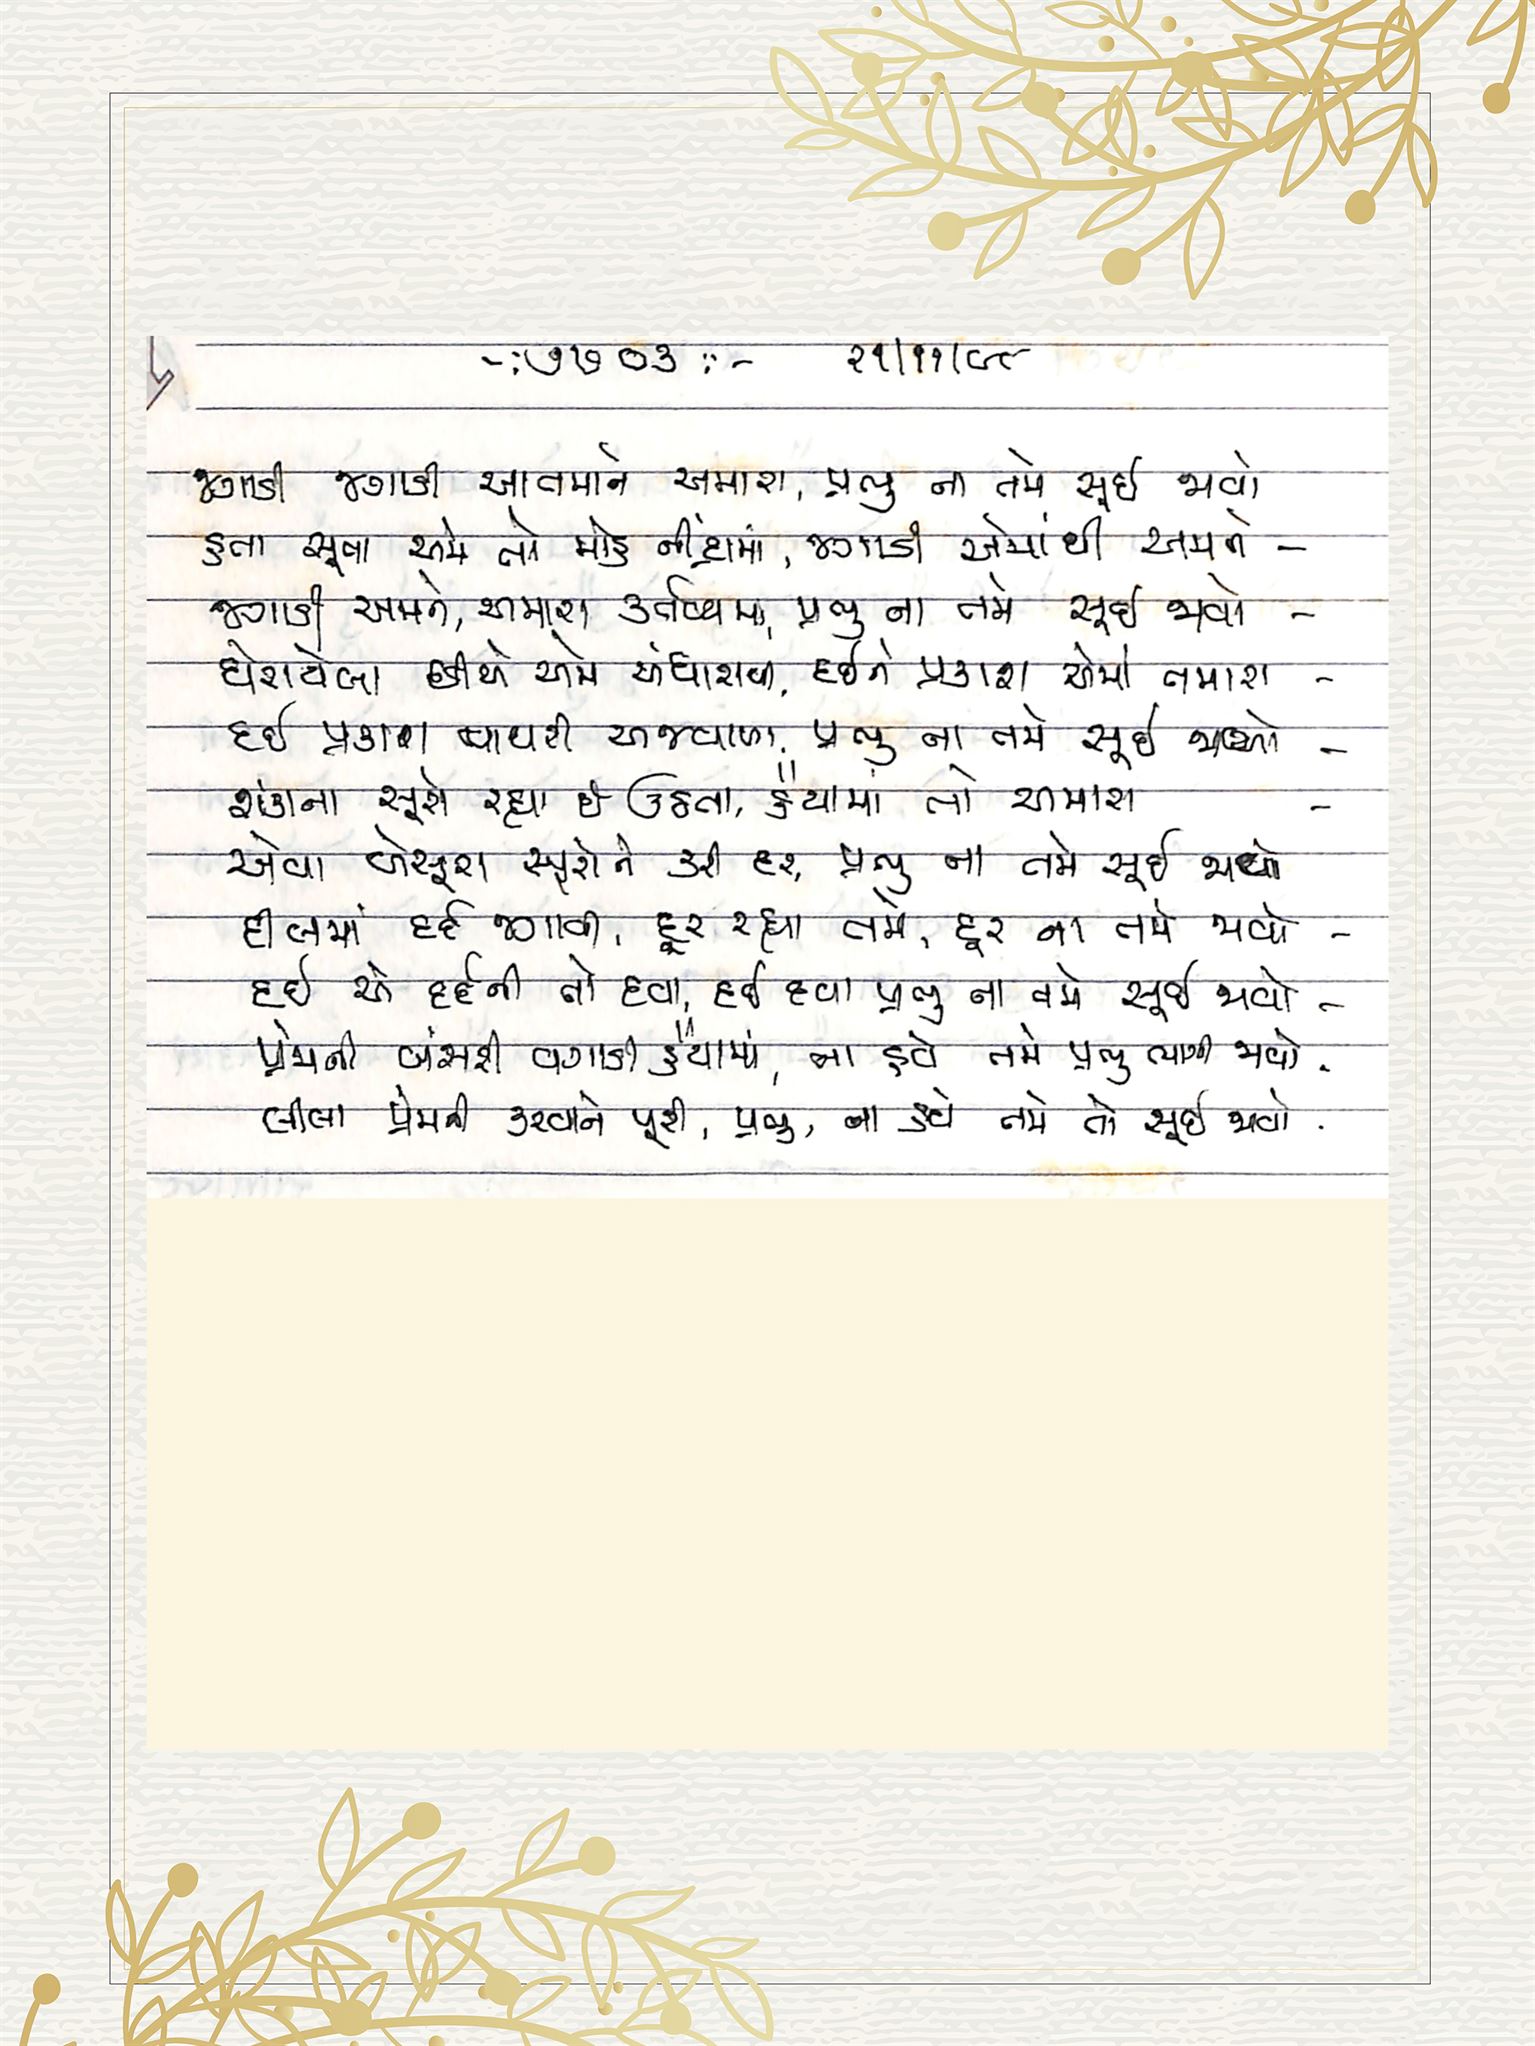 -:૭૭૦૩:- ૨૧/૧૧/૯૮
જગાડી જગાડી આતમાને અમારા, પ્રભુ ના તમે સૂઈ જાવો
હતા સૂતા અમે તો મોહ નીંદ્રામાં, જગાડી એમાંથી અમને -
જગાડી અમને, અમારા કર્તવ્યમાં, પ્રભુ ના તમે સૂઈ જાવો -
ઘેરાયેલા છીએ અમે અંધારાથી, દઈને પ્રકાશ એમાં તમારા -
દઈ પ્રકાશ પાથરી અજવાળા, પ્રભુ ના તમે સૂઈ જાવો -
શંકાના સૂરો રહ્યા છે ઉઠતા, હૈયામાં તો અમારા -
એવા બેસૂરા સૂરોને કરી દૂર, પ્રભુ ના તમે સૂઈ જાવો
દીલમાં દર્દ જગાવી, દૂર રહ્યા તમે, દૂર ના તમે જાવો -
દઈ એ દર્દની તો દવા, દઈ દવા પ્રભુ ના તમે સૂઈ જાવો -
પ્રેમની બંસરી વગાડી હૈયામાં, ના હવે તમે પ્રભુ ત્યાગી જાવો.
લીલા પ્રેમની કરવાને પૂરી, પ્રભુ, ના હવે તમે તો સૂઈ જાવો.